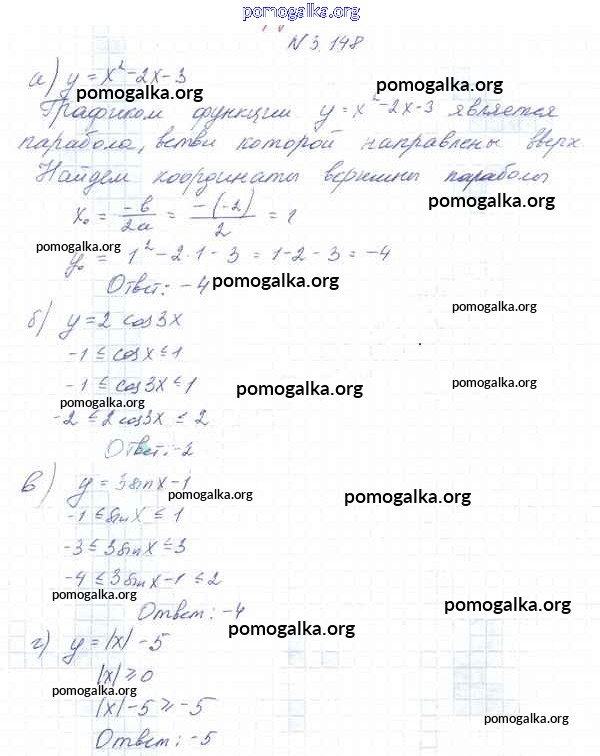 pomogalka.org
N 3.148
а) y = x² - 2x - 3
pomogalka.org
pomogalka.org
Графиком функции y = x² - 2x - 3 является
парабола, ветви которой направлены вверх
Найдем координаты вершины параболы
x₀ = -b/2a = -(-2)/2 = 1
pomogalka.org
pomogalka.org
y₀ = 1² - 2·1 - 3 = 1 - 2 - 3 = -4
pomogalka.org
Ответ: -4
pomogalka.org
б) y = 2 cos 3x
-1 ≤ cos x ≤ 1
-1 ≤ cos 3x ≤ 1
pomogalka.org
pomogalka.org
pomogalka.org
-2 ≤ 2 cos 3x ≤ 2
Ответ: -2
в) y = 3 sin x - 1
pomogalka.org
pomogalka.org
-1 ≤ sin x ≤ 1
-3 ≤ 3 sin x ≤ 3
-4 ≤ 3 sin x - 1 ≤ 2
pomogalka.org
pomogalka.org
Ответ: -4
pomogalka.org
г) y = |x| - 5
|x| ≥ 0
pomogalka.org
|x| - 5 ≥ -5
pomogalka.org
Ответ: -5